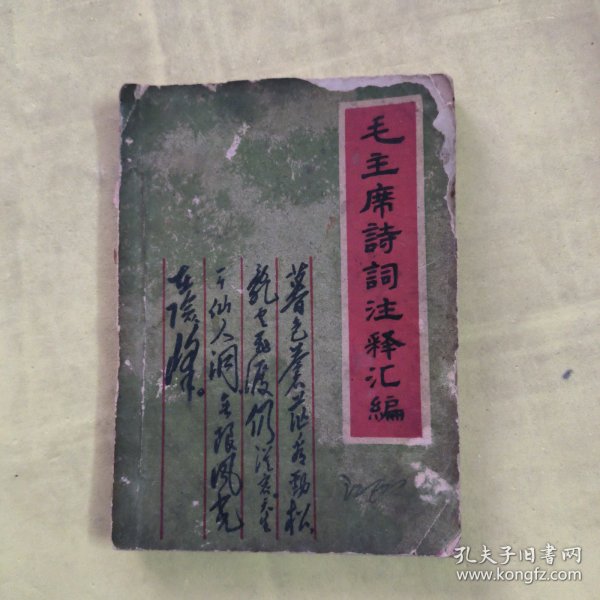 毛主席詩詞注释汇編
暮色蒼茫看勁松
乱云飞渡仍從容天生
一个仙人洞無限風光
在险峰。
孔夫子旧书网
www.kongfz.com